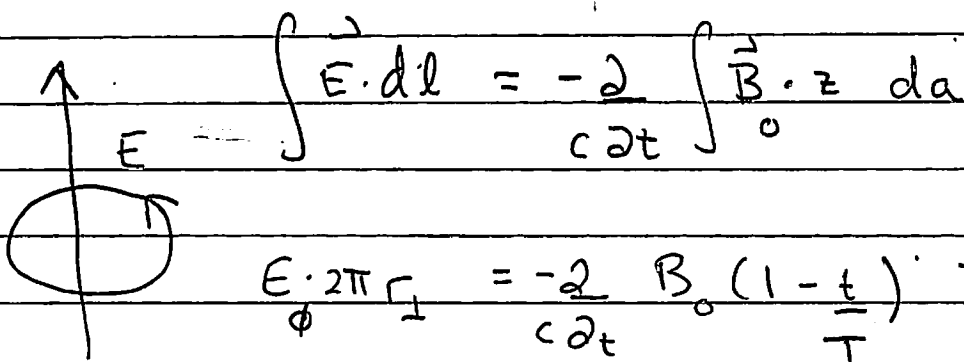 E ∫ E⃗·dl = -∂/(c∂t) ∫ B⃗₀·z da
E_ϕ·2π r_⊥ = -∂/(c∂t) B₀ (1 - t/T)